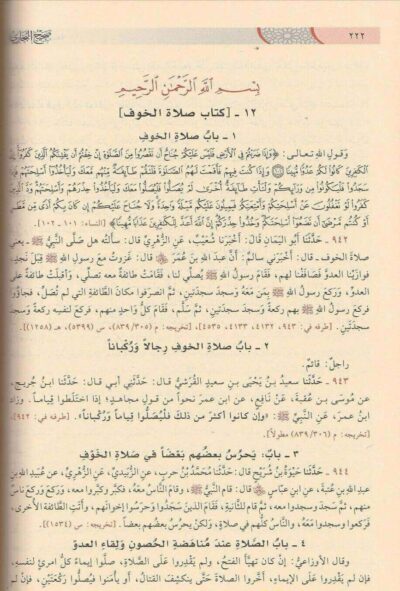 ٢٢٢ صحيح البخاري
بِسْمِ اللَّهِ الرَّحْمَٰنِ الرَّحِيمِ
١٢ - [كتاب صلاة الخوف]
١ - بابُ صلاةِ الخوفِ
وقولِ اللهِ تعالى: ﴿وَإِذَا ضَرَبْتُمْ فِي الْأَرْضِ فَلَيْسَ عَلَيْكُمْ جُنَاحٌ أَن تَقْصُرُوا مِنَ الصَّلَوٰةِ إِنْ خِفْتُمْ أَن يَفْتِنَكُمُ الَّذِينَ كَفَرُوا إِنَّ
الْكَٰفِرِينَ كَانُوا لَكُمْ عَدُوًّا مُّبِينًا ۝ وَإِذَا كُنتَ فِيهِمْ فَأَقَمْتَ لَهُمُ الصَّلَوٰةَ فَلْتَقُمْ طَآئِفَةٌ مِّنْهُم مَّعَكَ وَلْيَأْخُذُوا أَسْلِحَتَهُمْ فَإِذَا
سَجَدُوا فَلْيَكُونُوا مِن وَرَآئِكُمْ وَلْتَأْتِ طَآئِفَةٌ أُخْرَىٰ لَمْ يُصَلُّوا فَلْيُصَلُّوا مَعَكَ وَلْيَأْخُذُوا حِذْرَهُمْ وَأَسْلِحَتَهُمْ وَدَّ الَّذِينَ
كَفَرُوا لَوْ تَغْفُلُونَ عَنْ أَسْلِحَتِكُمْ وَأَمْتِعَتِكُمْ فَيَمِيلُونَ عَلَيْكُم مَّيْلَةً وَٰحِدَةً وَلَا جُنَاحَ عَلَيْكُمْ إِن كَانَ بِكُمْ أَذًى مِّن مَّطَرٍ
أَوْ كُنتُم مَّرْضَىٰ أَن تَضَعُوا أَسْلِحَتَكُمْ وَخُذُوا حِذْرَكُمْ إِنَّ اللَّهَ أَعَدَّ لِلْكَٰفِرِينَ عَذَابًا مُّهِينًا﴾ [النساء: ١٠١ - ١٠٢].
٩٤٢ - حَدَّثَنا أبو اليَمانِ قالَ: أخبَرَنا شُعَيْبٌ، عَنِ الزُّهْرِيِّ قالَ: سألتُه هل صَلَّى النبيُّ ﷺ - يعني
صلاةَ الخوفِ - قالَ: أخبَرَني سالمٌ: أنَّ عبدَ اللهِ بنَ عُمَرَ قالَ: غزوتُ معَ رسولِ اللهِ ﷺ قِبَلَ نجدٍ،
فوازَينا العدوَّ فصافَفْنا لهم، فقامَ رسولُ اللهِ ﷺ يُصلِّي لنا، فقامَتْ طائفةٌ معه تصلي، وأقبلَت طائفةٌ على
العدوِّ، وركعَ رسولُ اللهِ ﷺ بمَن معَهُ وسجدَ سجدتَينِ، ثمَّ انصرَفوا مكانَ الطائفةِ التي لم تُصَلِّ، فجاؤوا
فركعَ رسولُ اللهِ ﷺ بهم ركعةً وسجدَ سجدتَينِ، ثمَّ سلَّمَ، فقامَ كلُّ واحدٍ منهم، فركعَ لنفسِه ركعةً وسجدَ
سجدتَينِ. [طرفه في: ٩٤٣، ٤١٣٢، ٤١٣٣، ٤٥٣٥]، [تخريجه: م (٨٣٩/٣٠٥)، س (٥٣٩٩)، هـ (١٢٥٨)].
٢ - بابُ صلاةِ الخوفِ رِجالاً ورُكْباناً
راجلٌ: قائمٌ.
٩٤٣ - حَدَّثَنا سعيدُ بنُ يَحْيَى بنِ سعيدٍ القُرَشيُّ قالَ: حَدَّثَني أبي قالَ: حَدَّثَنا ابنُ جُرَيجٍ،
عن موسَى بنِ عُقبةَ، عَنْ نافعٍ، عن ابنِ عمرَ نحواً من قولِ مجاهدٍ: إذا اختلَطوا قياماً. وزادَ
ابنُ عمرَ، عَنِ النَّبيِّ ﷺ: «وإن كانوا أكثرَ من ذلكَ فليُصَلُّوا قياماً ورُكْباناً». [طرفه في: ٩٤٢]،
[تخريجه: م (٨٣٩/٣٠٦) مطولاً].
٣ - بابٌ: يَحرُسُ بعضُهم بَعْضاً في صَلاةِ الخَوْفِ
٩٤٤ - حَدَّثَنا حَيْوَةُ بنُ شُرَيْحٍ قالَ: حَدَّثَنا مُحَمَّدُ بنُ حربٍ، عَنِ الزُّبَيْدِيِّ، عَنِ الزُّهْرِيِّ، عن عُبَيدِ اللهِ بنِ
عبدِ اللهِ بنِ عُتْبَةَ، عَنِ ابنِ عبّاسٍ قالَ: قامَ النبيُّ ﷺ، وقامَ النَّاسُ معَهُ، فكبَّرَ وكبَّروا معه، وركعَ وركعَ ناسٌ
منهم، ثمَّ سَجدَ وسجدوا معه، ثمَّ قامَ للثَّانيةِ، فقامَ الذينَ سَجَدُوا وحَرَسُوا إخوانَهم، وأتتِ الطَّائفةُ الأُخرى،
فرَكعوا وسجدوا مَعَهُ، والنَّاسُ كلُّهم في صلاةٍ، ولكنْ يَحرُسُ بعضُهم بعضاً. [تخريجه: س (١٥٣٤)].
٤ - بابُ الصَّلاةِ عندَ مُناهَضةِ الحُصونِ ولِقاءِ العدوِّ
وقالَ الأوزاعيُّ: إنْ كانَ تهيَّأَ الفتحُ، ولم يَقدِروا على الصَّلاةِ، صلَّوا إيماءً كلُّ امرئٍ لنفسِه،
فإن لم يَقدِروا على الإيماءِ، أخَّروا الصلاةَ حتَّى ينكشِفَ القتالُ، أو يأمَنوا فيُصلُّوا ركعتَينِ، فإنْ لم